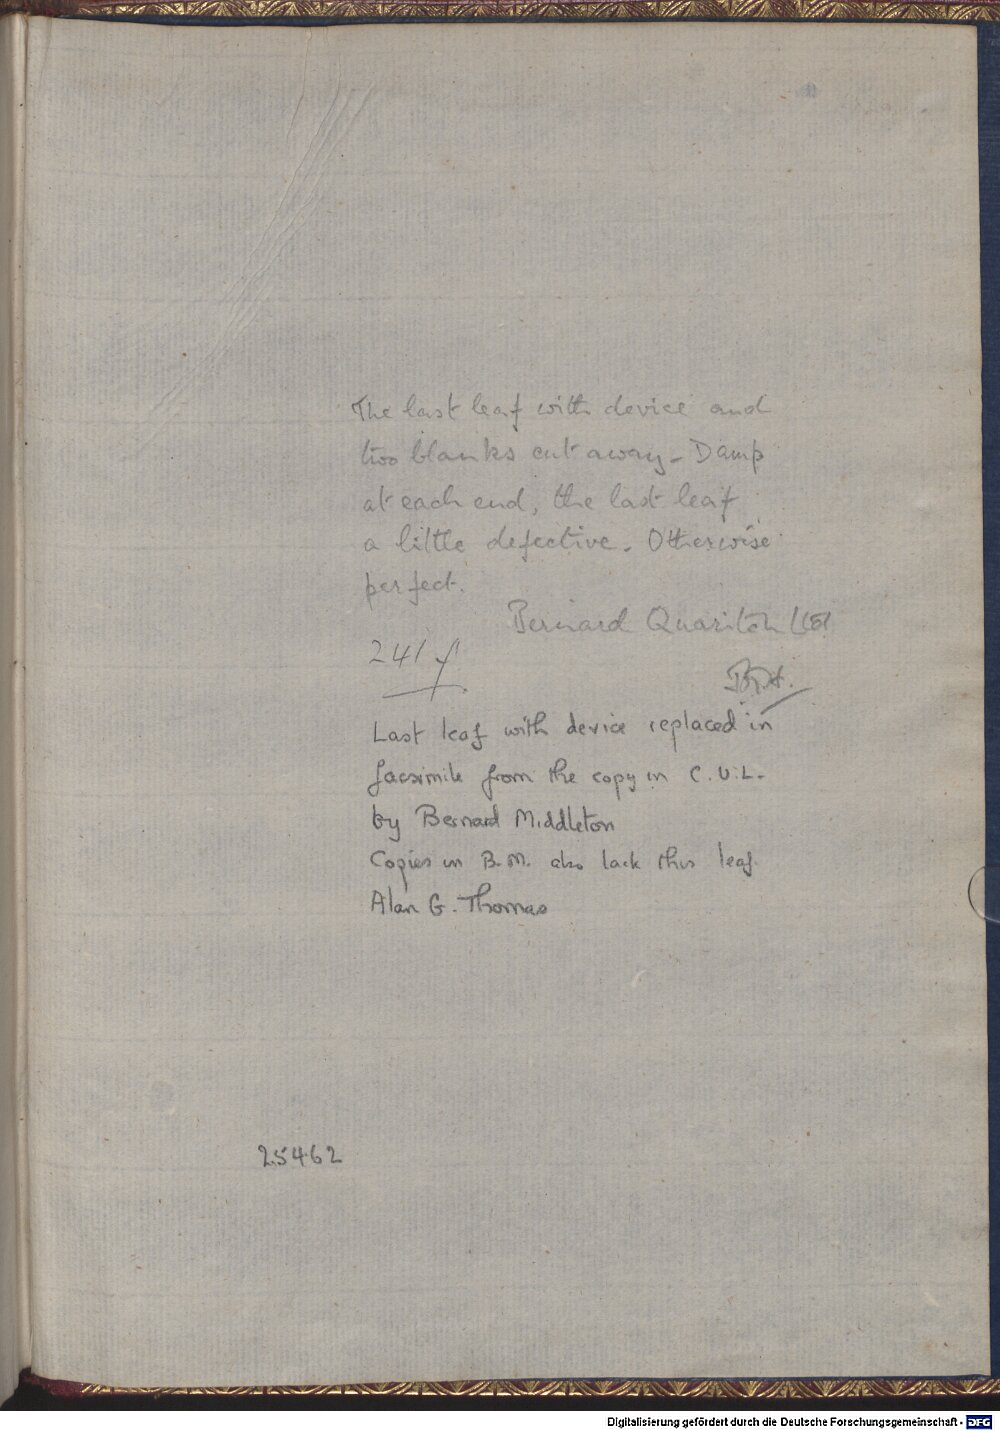 The last leaf with device and
two blanks cut away - Damp
at each end, the last leaf
a little defective. Otherwise
perfect.
Bernard Quaritch Ltd
241 f
Last leaf with device replaced in
facsimile from the copy in C.U.L.
by Bernard Middleton
Copies in B.M. also lack this leaf.
Alan G. Thomas
25462
Digitalisierung gefördert durch die Deutsche Forschungsgemeinschaft - DFG